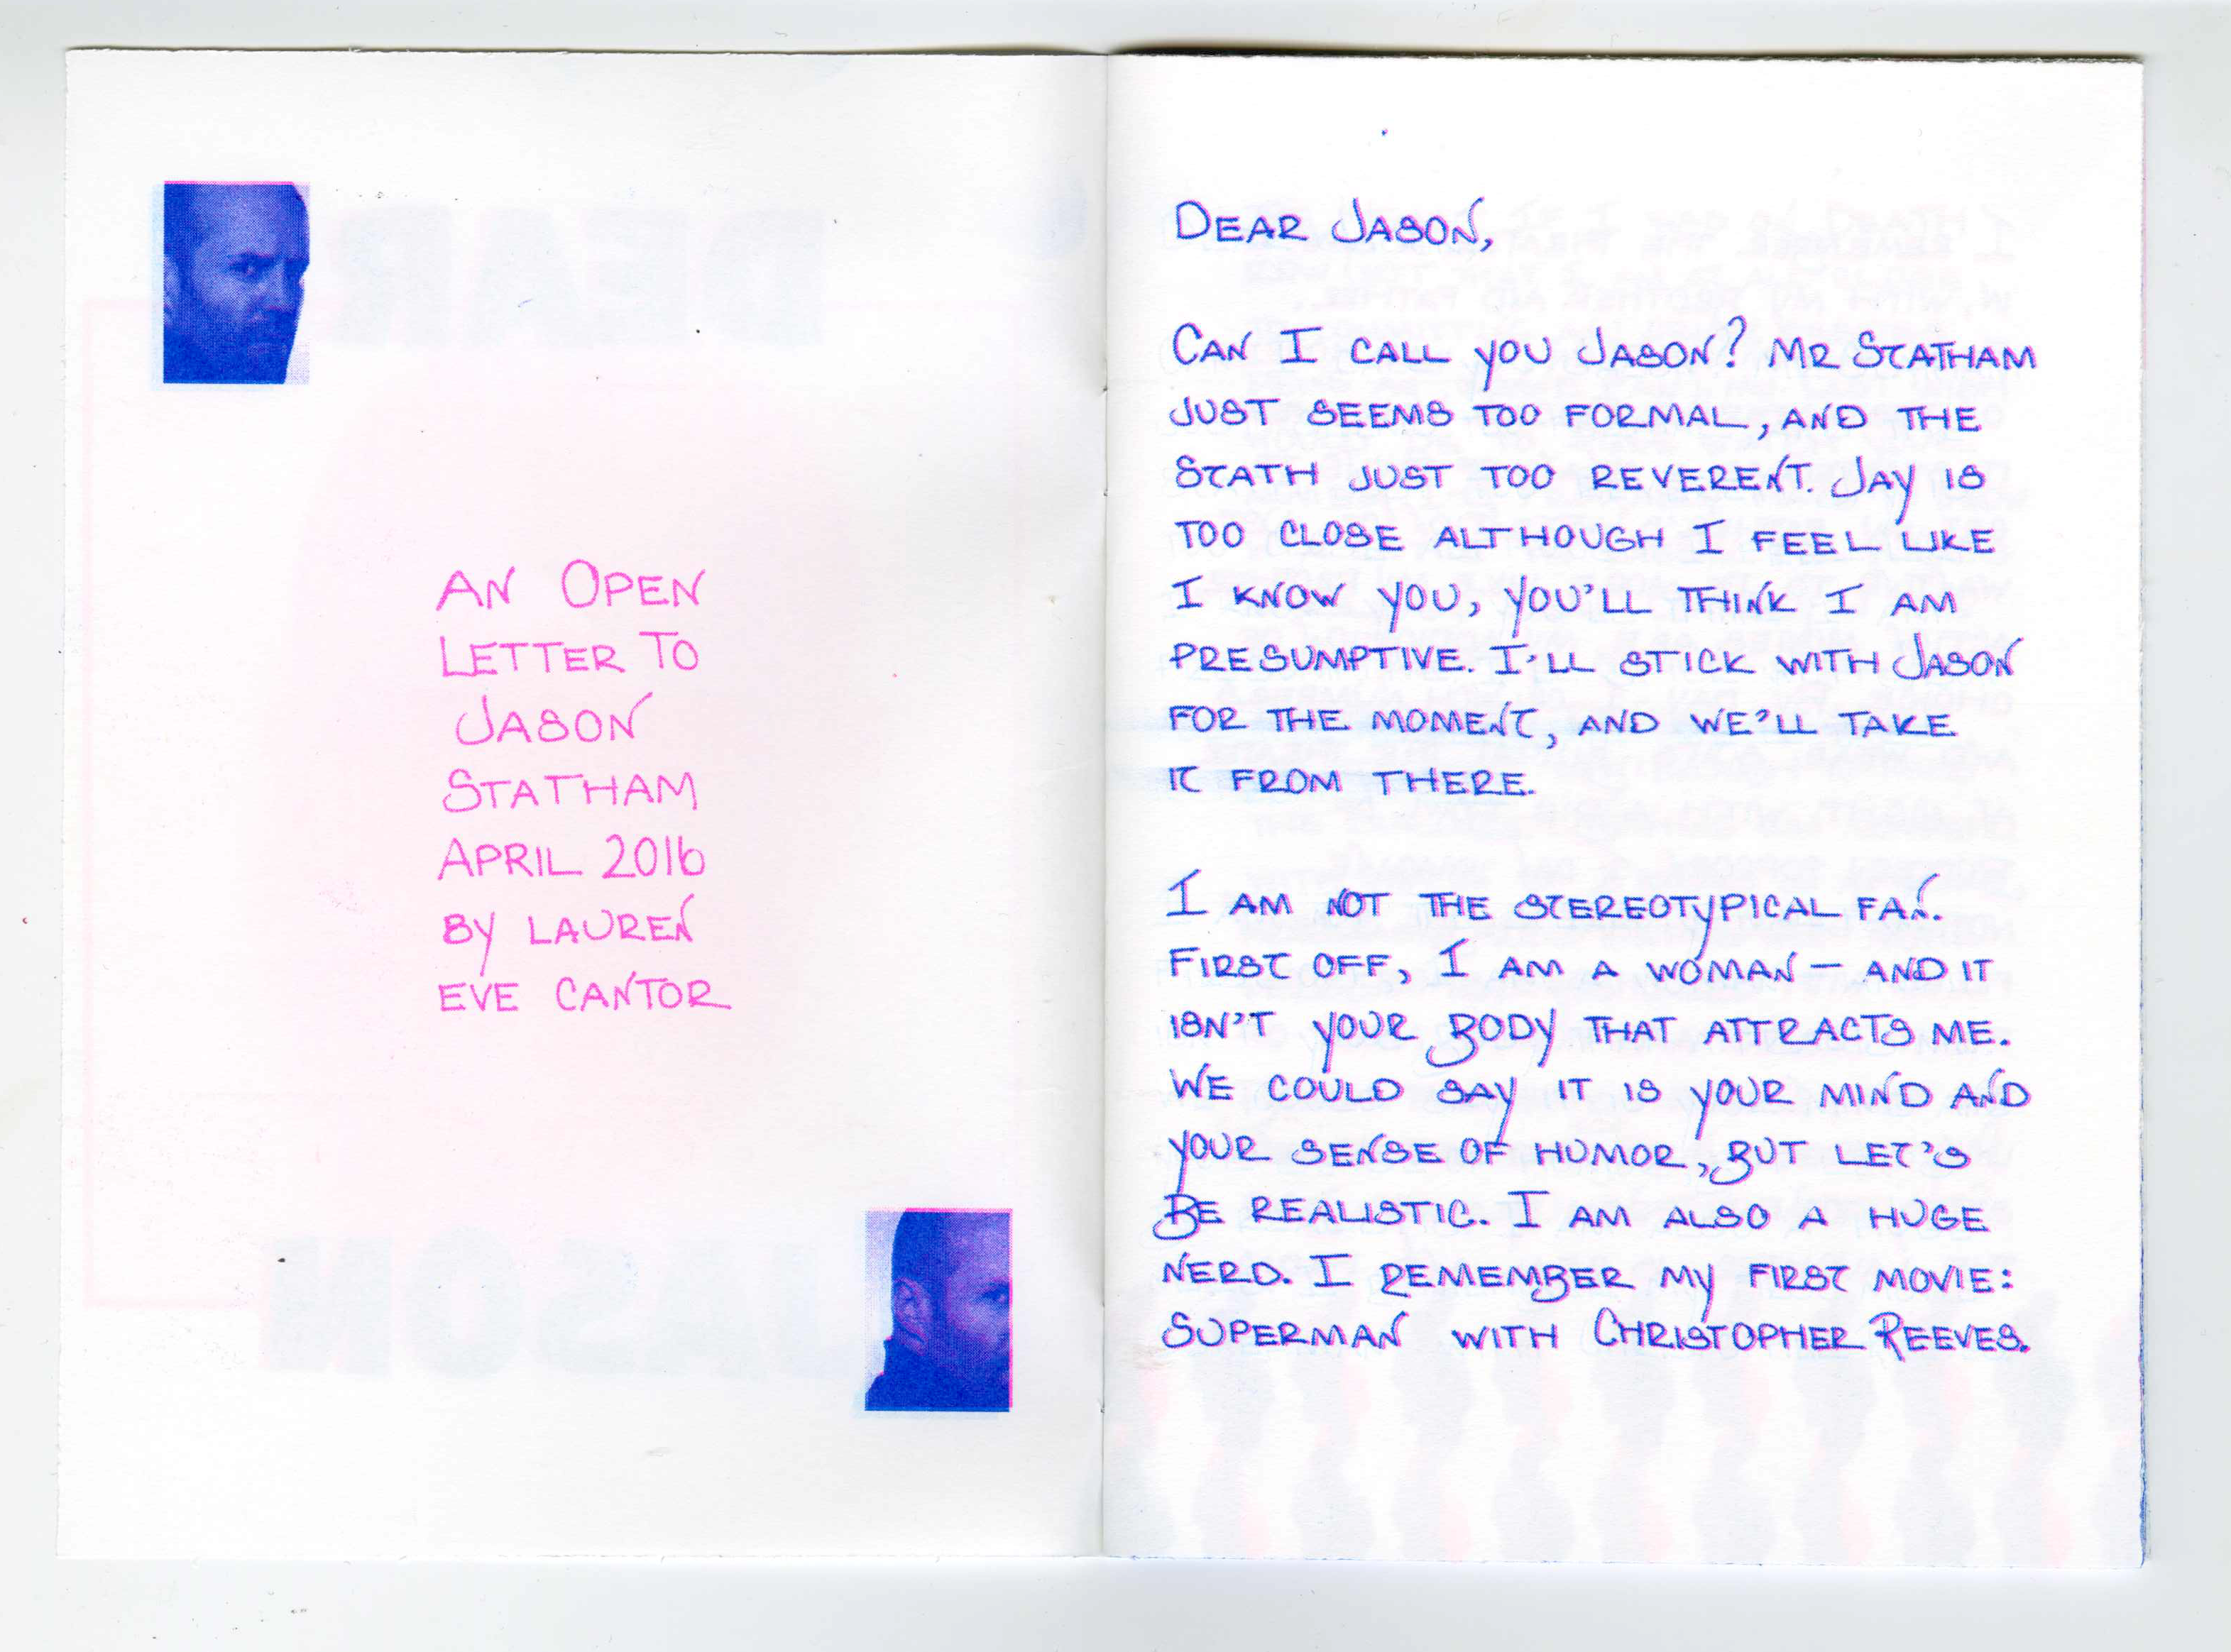 AN OPEN
LETTER TO
JASON
STATHAM
APRIL 2016
BY LAUREN
EVE CANTOR
DEAR JASON,
CAN I CALL YOU JASON? MR STATHAM
JUST SEEMS TOO FORMAL, AND THE
STATH JUST TOO REVERENT. JAY IS
TOO CLOSE ALTHOUGH I FEEL LIKE
I KNOW YOU, YOU'LL THINK I AM
PRESUMPTIVE. I'LL STICK WITH JASON
FOR THE MOMENT, AND WE'LL TAKE
IT FROM THERE.
I AM NOT THE STEREOTYPICAL FAN.
FIRST OFF, I AM A WOMAN — AND IT
ISN'T YOUR BODY THAT ATTRACTS ME.
WE COULD SAY IT IS YOUR MIND AND
YOUR SENSE OF HUMOR, BUT LET'S
BE REALISTIC. I AM ALSO A HUGE
NERD. I REMEMBER MY FIRST MOVIE:
SUPERMAN WITH CHRISTOPHER REEVES.